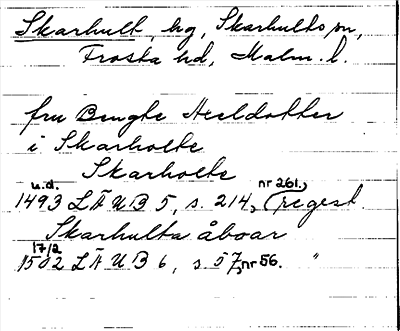 Skarhult, hg, Skarhults sn,
Frosta hd, Malm. l.
fru Bengte Axeldotter
i Skarholte
Skarholte
u.d. nr 261,
1493 LÄUB 5, s. 214, (regest
Skarhulta åboar
17/2
1502 LÄUB 6, s. 57, nr 56. "